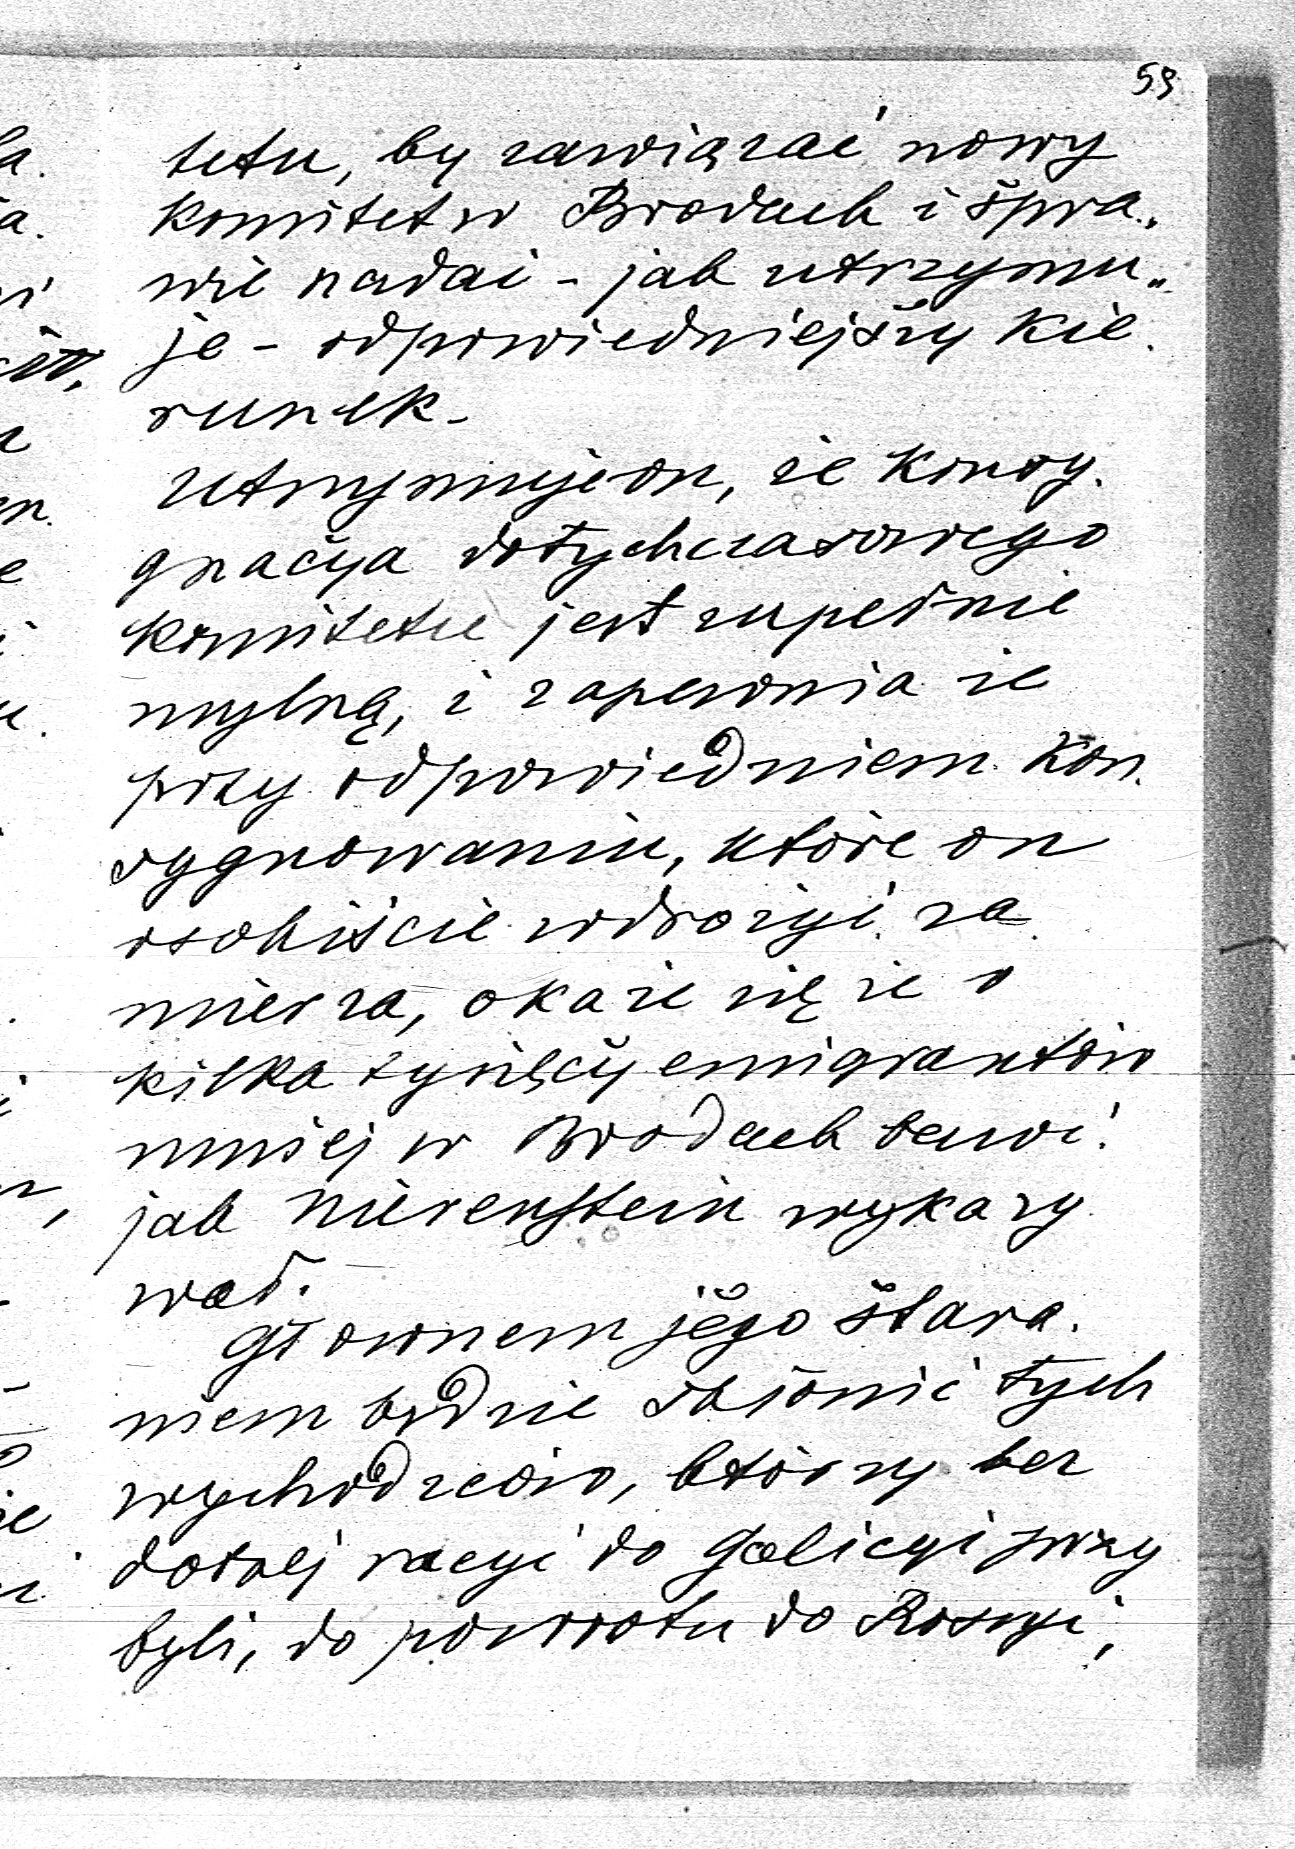 59
tetu, by zawiązać nowy
komitet w Brodach i spra„
wie nadać - jak utrzymu„
je - odpowiedniejszy kie.
runek.
Utrzymuje on, że konsy.
gnacya dotychczasowego
komitetu jest zupełnie
mylną, i zapewnia że
przy odpowiedniem kon.
sygnowaniu, które on
osobiście wdrożyć za.
mierza, okaże się że o
kilka tysięcy emigrantów
mniej w Brodach bawi
jak Nierenstein wykazy
wał.
Głównem jego stara.
niem będzie skłonić tych
wychodzców, którzy bez
dotnej racyi do Galicyi przy
byli, do powrotu do Rossyi,